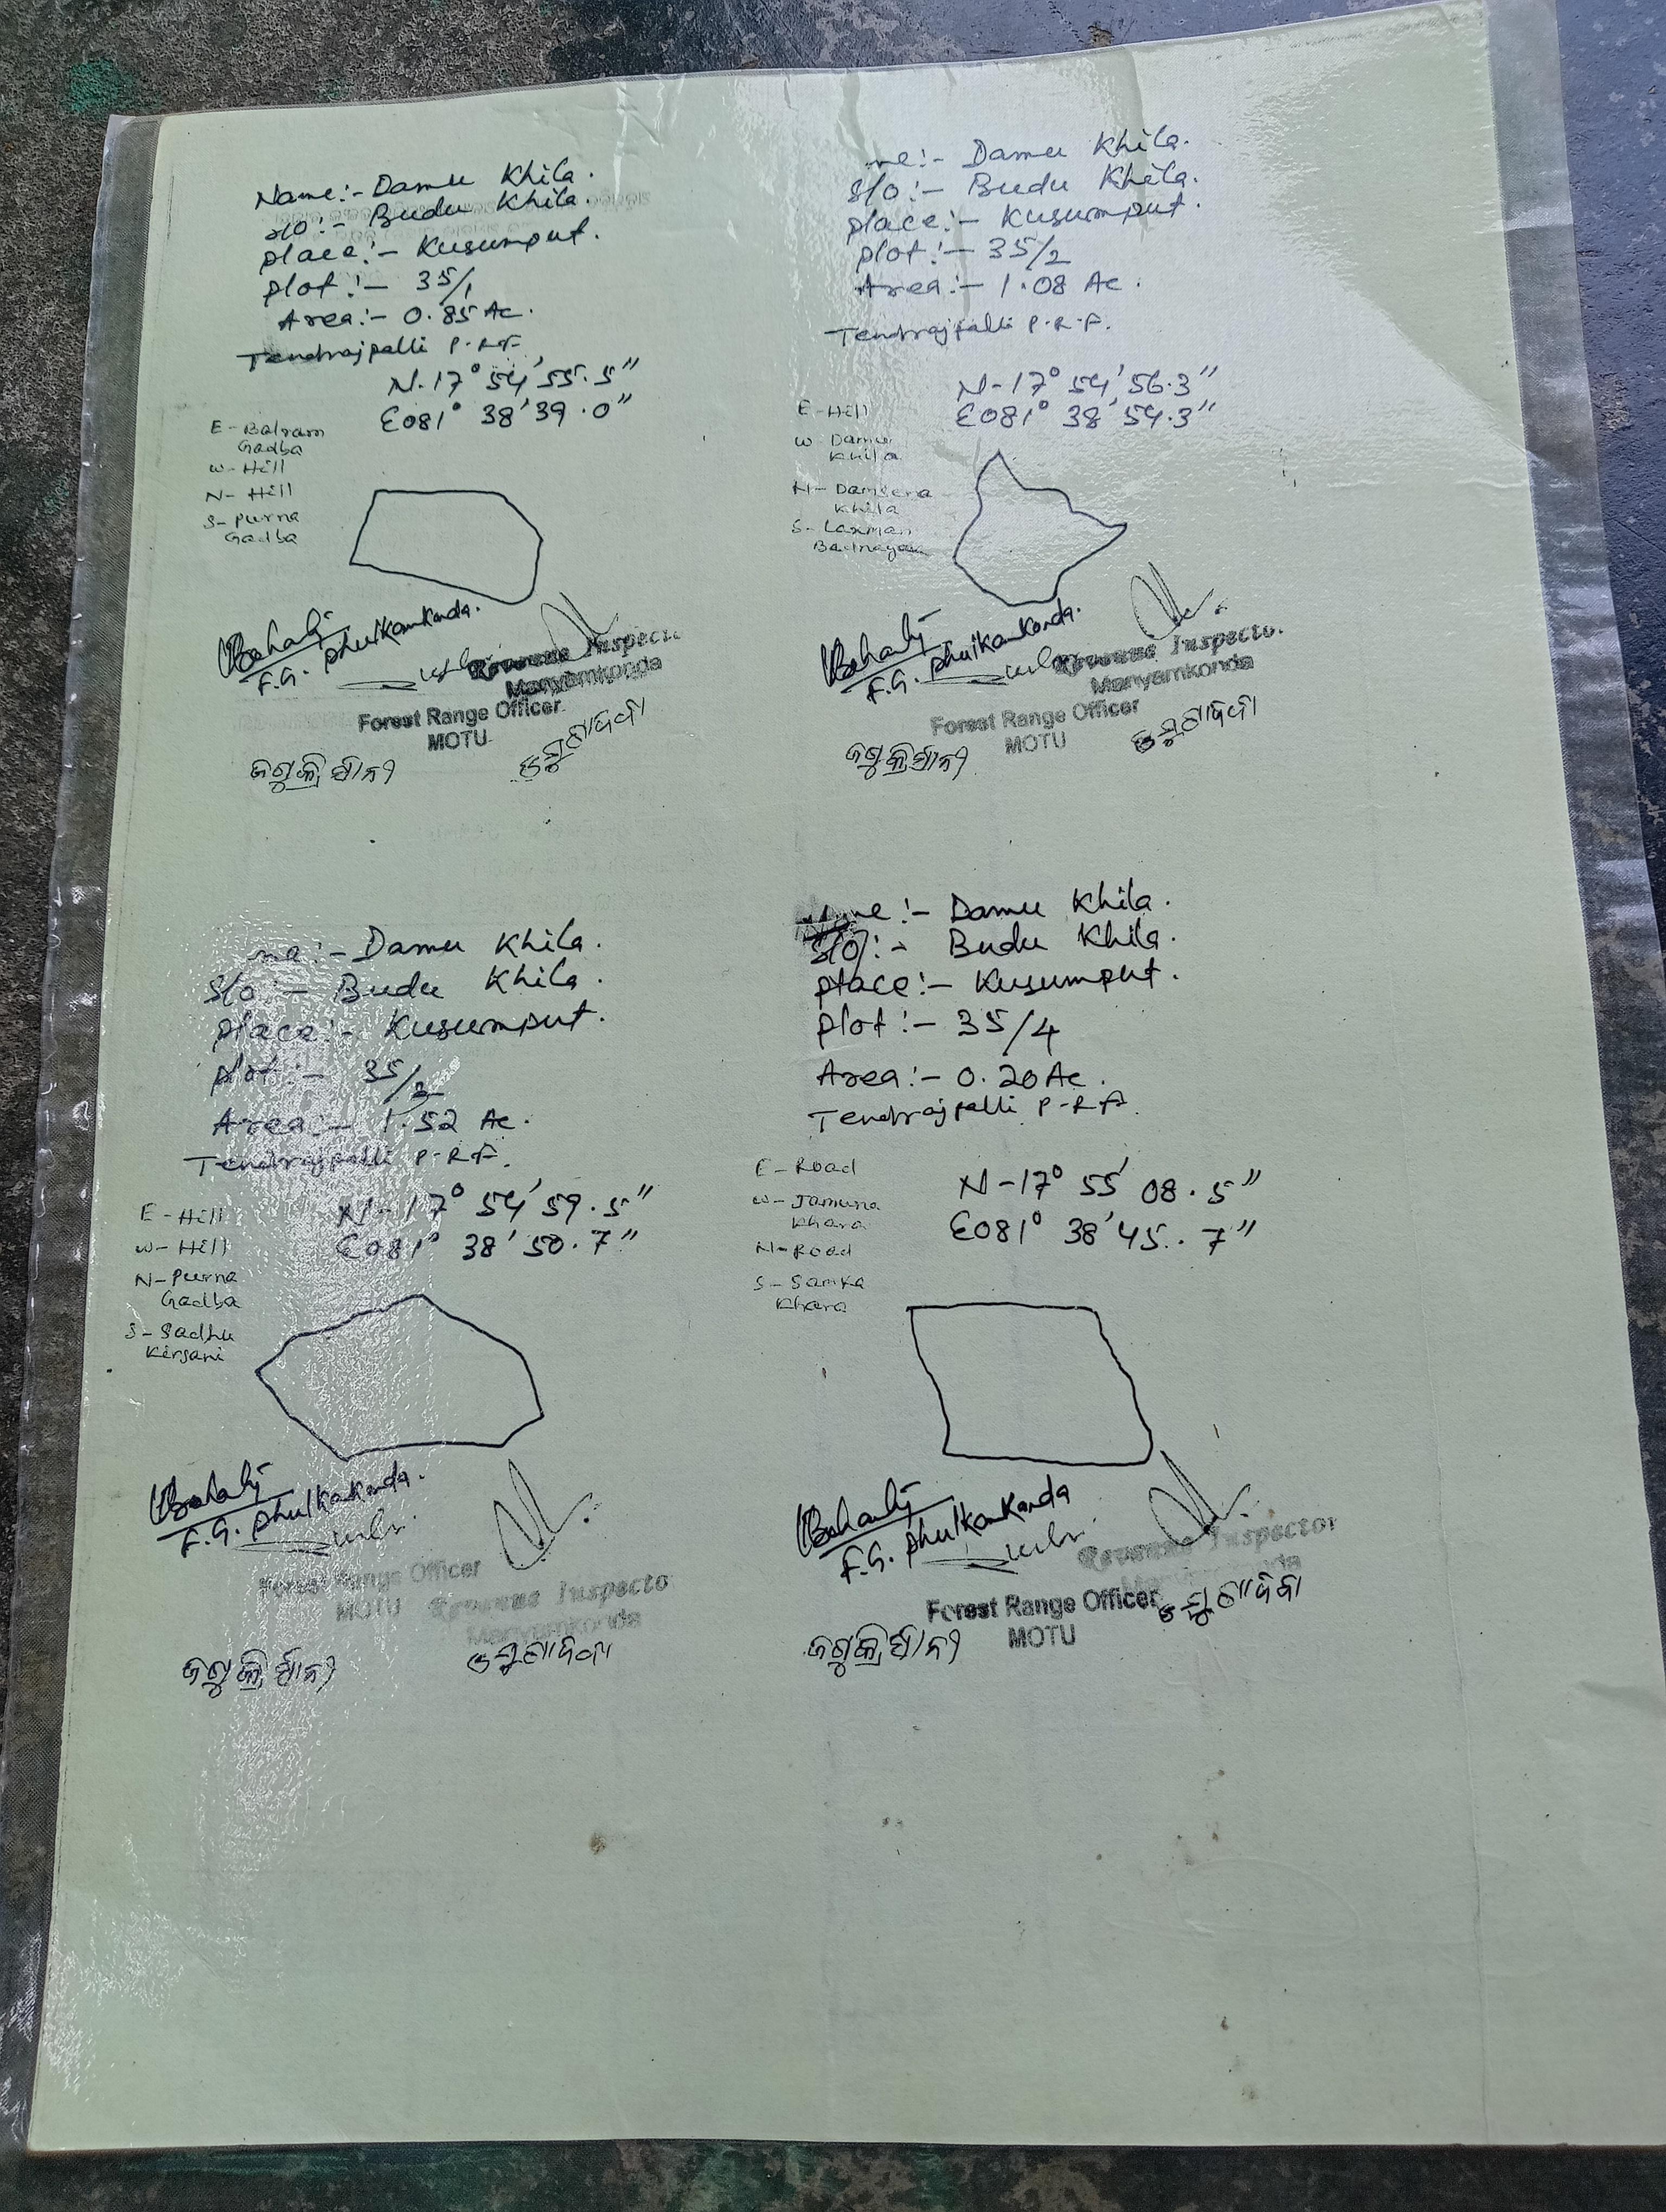 Name:- Damu Khila.
S/o:- Budu Khila.
place:- Kusumput.
plot:- 35/1
Area:- 0.85 Ac.
Tendrajpalli P.R.F
N-17° 54' 55.5"
E081° 38' 39.0"
E- Balram
Gadba
W- Hill
N- Hill
S- Purna
Gadba
F.G. Phulkankonda.
Revenue Inspecto
Manyamkonda
Forest Range Officer
MOTU
me:- Damu Khila.
S/o:- Budu Khila.
place:- Kusumput.
plot:- 35/2
Area:- 1.08 Ac.
Tendrajpalli P.R.F.
N-17° 54' 56.3"
E081° 38' 54.3"
E-Hill
W Damu
Khila
N- Damsena
Khila
S- Laxman
Badnayak
F.G. Phulkankonda.
Revenue Inspecto
Manyamkonda
Forest Range Officer
MOTU
me:- Damu Khila.
S/o:- Budu Khila.
place:- Kusumput.
plot:- 35/3
Area:- 1.52 Ac.
Tendrajpalli P.R.F.
N-17° 54' 59.5"
E081° 38' 50.7"
E-Hill
W-Hill
N-Purna
Gadba
S-Sadhu
Kirsani
F.G. Phulkankonda.
Forest Range Officer
MOTU
Revenue Inspecto
Manyamkonda
me:- Damu Khila.
S/o:- Budu Khila.
place:- Kusumput.
plot:- 35/4
Area:- 0.20 Ac.
Tendrajpalli P.R.F.
N-17° 55' 08.5"
E081° 38' 45.7"
E-Road
W-Jamuna
Khara
N-Road
S-Samka
Khara
F.G. Phulkankonda
Revenue Inspector
Forest Range Officer
MOTU